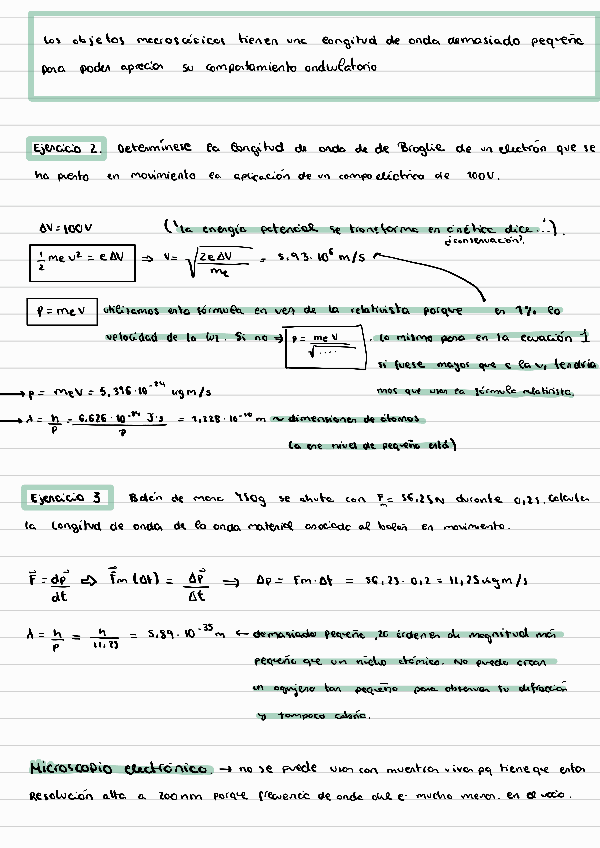 Los objetos macroscópicos tienen una longitud de onda demasiado pequeña
para poder apreciar su comportamiento ondulatorio
Ejercicio 2. Determínese la longitud de onda de de Broglie de un electrón que se
ha puesto en movimiento la aplicación de un campo eléctrico de 100V.
ΔV = 100V ("la energía potencial se transforma en cinética dice...").
¿conservación?
1/2 me v² = e ΔV ⇒ v = √(2eΔV/me) = 5,93·10⁶ m/s
p = me v utilizamos esta fórmula en vez de la relativista porque es 1% la
velocidad de la luz. Si no → p = me v/√.... . Lo mismo pasa en la ecuación 1
si fuese mayor que la v, tendría
→ p = me v = 5,396·10⁻²⁴ kg m/s mos que usar la fórmula relativista.
→ λ = h/p = 6,626·10⁻³⁴ J·s/p = 1,228·10⁻¹⁰ m ~ dimensiones de átomos
(a ese nivel de pequeño está)
Ejercicio 3 Balón de masa 450g se chuta con F = 56,25N durante 0,2s. Calcular
la longitud de onda de la onda material asociada al balón en movimiento.
F⃗ = dp⃗/dt ⇒ F⃗m (Δt) = Δp⃗/Δt ⇒ Δp = Fm·Δt = 56,25·0,2 = 11,25 kg m/s
λ = h/p = h/11,25 = 5,89·10⁻³⁵ m ← demasiado pequeña, 20 órdenes de magnitud más
pequeña que un núcleo atómico. No puedo crear
un agujero tan pequeño para observar su difracción
y tampoco cabría.
Microscopio electrónico → no se puede usar con muestras vivas pq tiene que estar
Resolución alta a 200nm porque frecuencia de onda del e⁻ mucho menor. en el vacío.